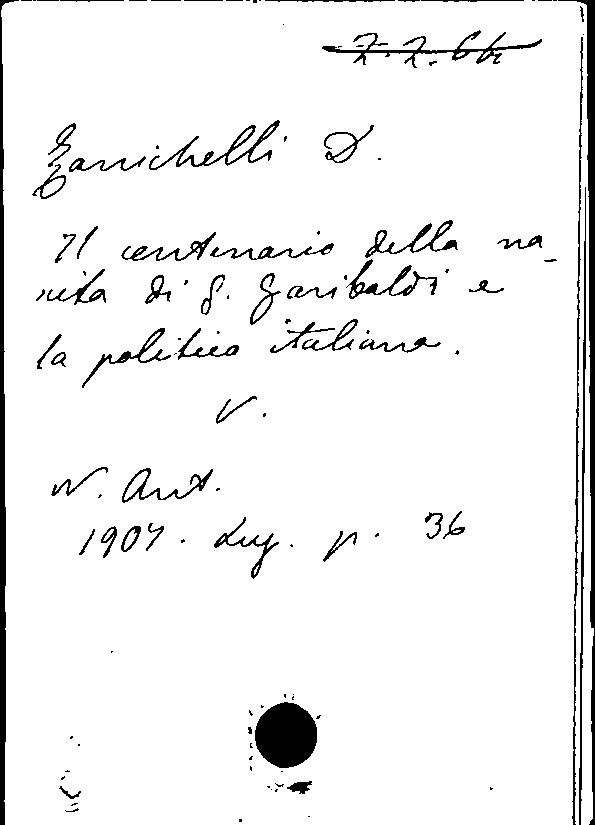 Z. Z. 66
Zanichelli D.
Il centenario della na-
scita di G. Garibaldi e
la politica italiana.
V.
N. Ant.
1907. Lug. p. 36